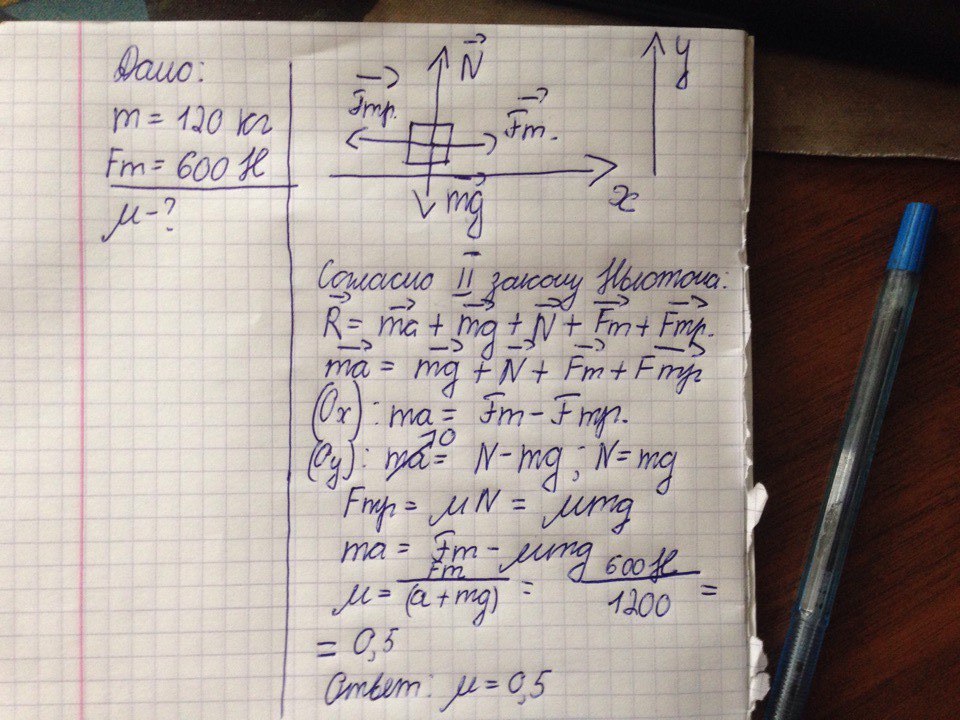 Дано:
m = 120 кг
Fт = 600 Н
μ - ?
N
Fтр.
Fт.
mg
y
x
Согласно II закону Ньютона:
R = ma + mg + N + Fт + Fтр.
ma = mg + N + Fт + Fтр
(Ox): ma = Fт - Fтр.
(Oy): ma = N - mg; N = mg
0
Fтр = μN = μmg
ma = Fт - μmg
μ = Fт / (a + mg) = 600 Н / 1200 =
= 0,5
Ответ: μ = 0,5